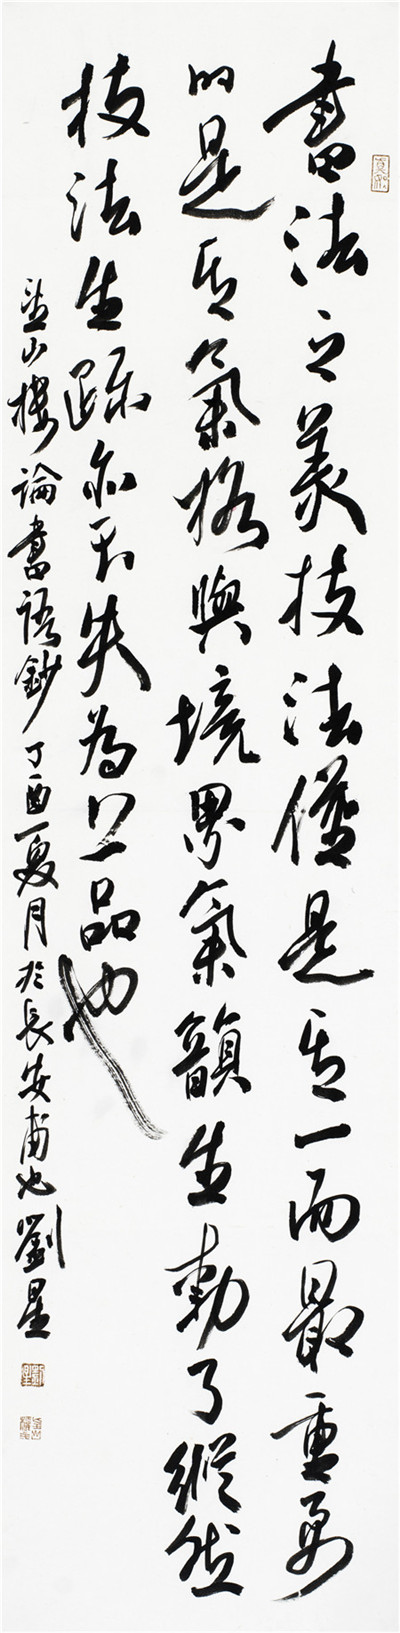 書法之美技法僅是其一而最重要
的是其氣格與境界氣韻生動了縱然
技法生疏亦不失為上品也
望山樓論書語鈔丁酉夏月於長安南池劉星